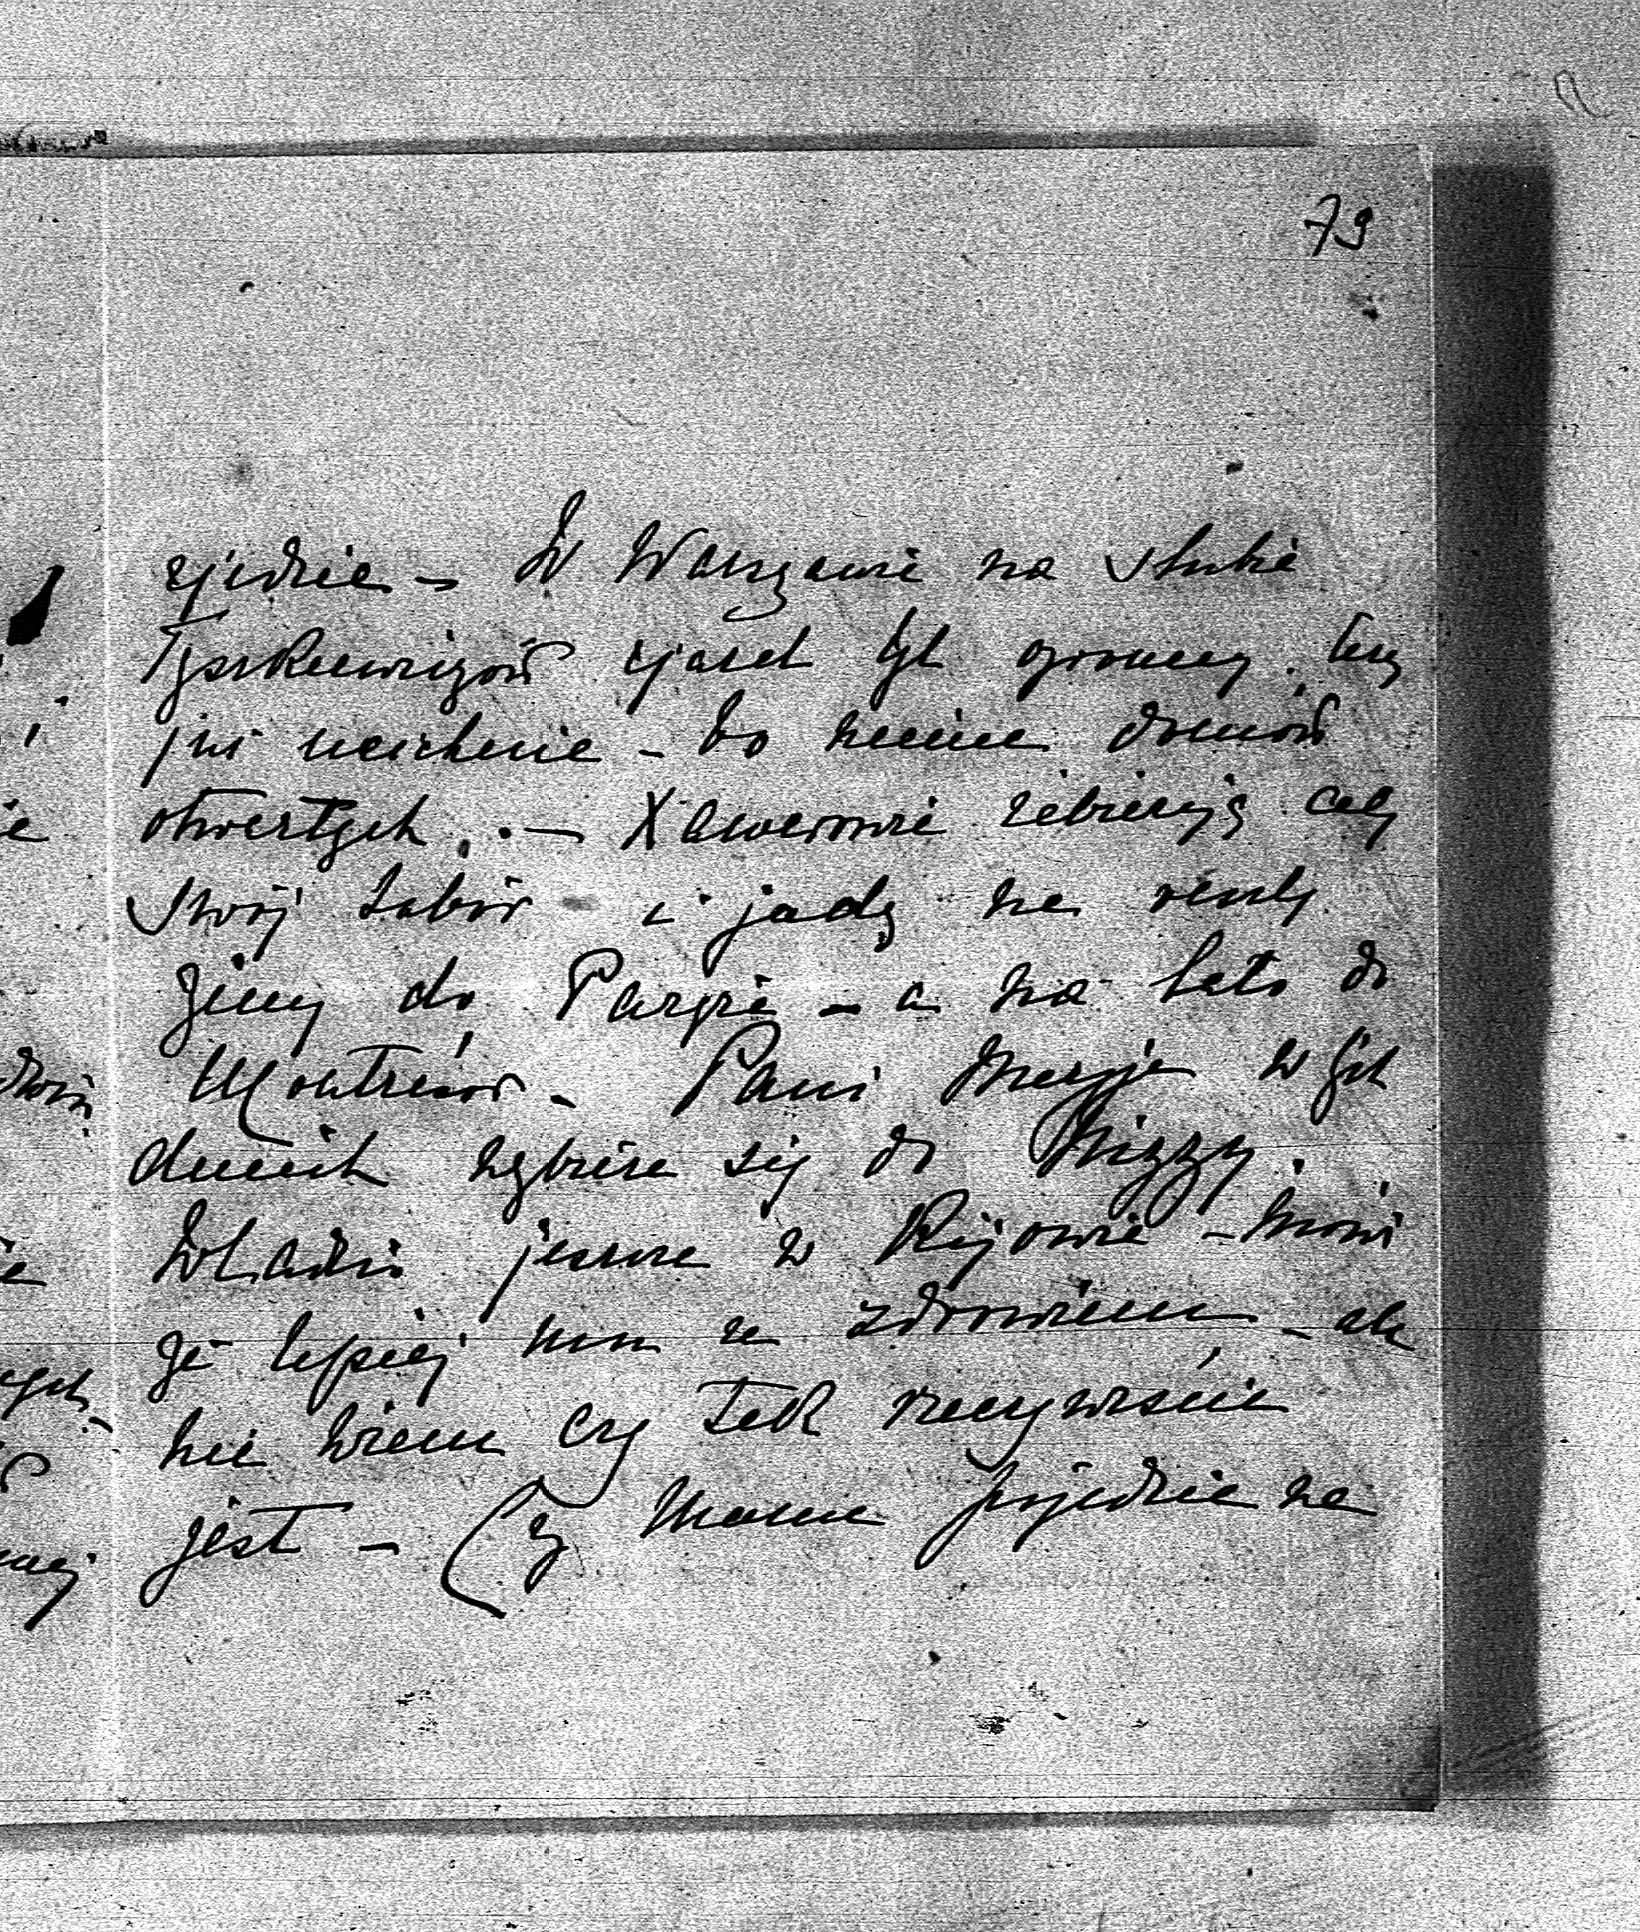 79
zjedzie – W Warszawie na ślubie
Tyszkiewiczów zjazd był ogromny. lecz
już ucichnie – bo niema domów
otwartych. – Xawerowie zabierają cały
swój tabór i jadą na resztę
zimy do Paryża – a na lato do
Montrésor – Pani Maryja w tych
dniach wybiera się do Nizzy.
Władzio jeszcze w Kijowie – mówi
że lepiej mu ze zdrowiem – ale
nie wiem czy tak rzeczywiście
jest – Czy Mama pojedzie na